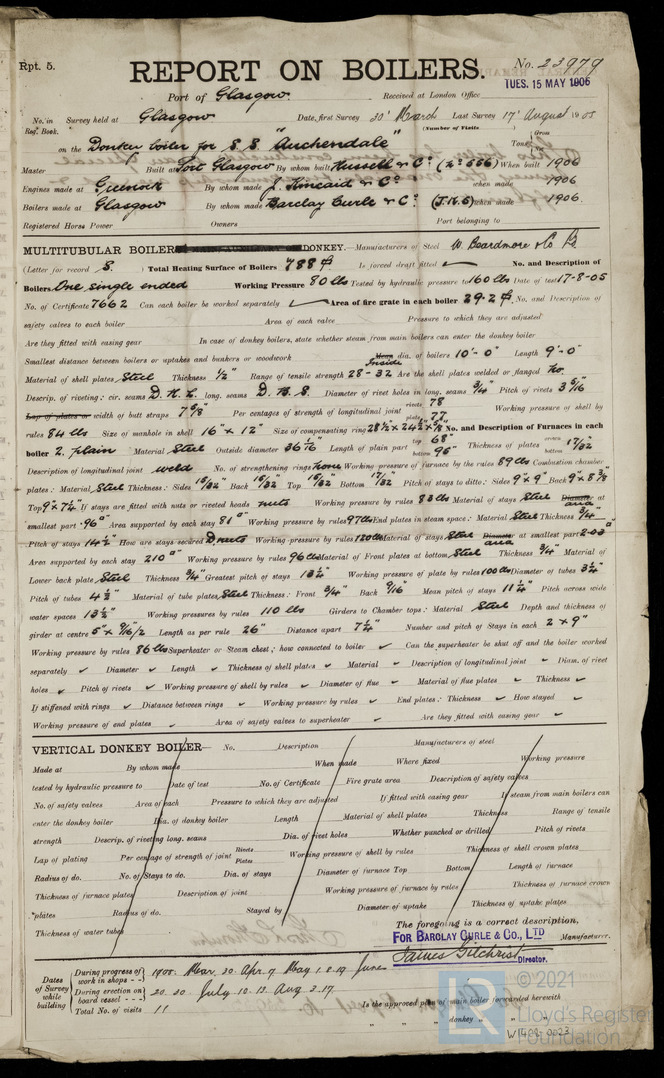 Rpt. 5.
No. 23979
REPORT ON BOILERS.
TUES. 15 MAY 1906
Port of Glasgow
Received at London Office
No. in Survey held at Glasgow Date, first Survey 30th March Last Survey 17th August 1905
Reg. Book. (Number of Visits
on the Donkey boiler for S.S. "Auchendale" Tons Gross
Master Built at Port Glasgow By whom built Russell & Co (No 556) When built 1906
Engines made at Greenock By whom made J. Kincaid & Co when made 1906
Boilers made at Glasgow By whom made Barclay Curle & Co (J.N.S) When made 1906.
Registered Horse Power Owners Port belonging to
MULTITUBULAR BOILERS DONKEY.—Manufacturers of Steel W. Beardmore & Co
(Letter for record S.) Total Heating Surface of Boilers 788 Is forced draft fitted ✓ No. and Description of
Boilers One single ended Working Pressure 80 lbs Tested by hydraulic pressure to 160 lbs Date of test 17-8-05
No. of Certificate 7662 Can each boiler be worked separately ✓ Area of fire grate in each boiler 29.2 No. and Description of
safety valves to each boiler Area of each valve Pressure to which they are adjusted
Are they fitted with easing gear In case of donkey boilers, state whether steam from main boilers can enter the donkey boiler
Smallest distance between boilers or uptakes and bunkers or woodwork Mean Inside dia. of boilers 10'-0" Length 9'-0"
Material of shell plates Steel Thickness 1/2" Range of tensile strength 28-32 Are the shell plates welded or flanged No.
Descrip. of riveting: cir. seams D.R.L. long. seams D.B.S. Diameter of rivet holes in long. seams 3/4" Pitch of rivets 3 5/16
Lap of plates or width of butt straps 7 5/8" Per centages of strength of longitudinal joint rivets 78 plate 77 Working pressure of shell by
rules 84 lbs Size of manhole in shell 16" x 12" Size of compensating ring 28 1/2" x 24 1/2" x 5/8" No. and Description of Furnaces in each
boiler 2. plain Material Steel Outside diameter 36 1/16" Length of plain part top 68" bottom 95" Thickness of plates crown bottom 17/32"
Description of longitudinal joint weld No. of strengthening rings None Working pressure of furnace by the rules 89 lbs Combustion chamber
plates: Material Steel Thickness: Sides 15/32" Back 15/32" Top 15/32" Bottom 17/32" Pitch of stays to ditto: Sides 9" x 9" Back 9" x 8 7/8"
Top 9" x 7 1/4" If stays are fitted with nuts or riveted heads nuts Working pressure by rules 83 lbs Material of stays Steel Diameter area at
smallest part .96" Area supported by each stay 81" Working pressure by rules 97 lbs End plates in steam space: Material Steel Thickness 3/4"
Pitch of stays 14 1/2" How are stays secured D. nuts Working pressure by rules 120 lbs Material of stays Steel Diameter area at smallest part 2.03"
Area supported by each stay 210" Working pressure by rules 96 lbs Material of Front plates at bottom Steel Thickness 3/4" Material of
Lower back plate Steel Thickness 3/4" Greatest pitch of stays 13 1/2" Working pressure of plate by rules 100 lbs Diameter of tubes 3 1/4"
Pitch of tubes 4 1/2" Material of tube plates Steel Thickness: Front 3/4" Back 9/16" Mean pitch of stays 11 1/4" Pitch across wide
water spaces 13 1/2" Working pressures by rules 110 lbs Girders to Chamber tops: Material Steel Depth and thickness of
girder at centre 5" x 9/16/2 Length as per rule 26" Distance apart 7 1/4" Number and pitch of Stays in each 2 x 9"
Working pressure by rules 86 lbs Superheater or Steam chest; how connected to boiler ✓ Can the superheater be shut off and the boiler worked
separately ✓ Diameter ✓ Length ✓ Thickness of shell plates ✓ Material ✓ Description of longitudinal joint ✓ Diam. of rivet
holes ✓ Pitch of rivets ✓ Working pressure of shell by rules ✓ Diameter of flue ✓ Material of flue plates ✓ Thickness ✓
If stiffened with rings ✓ Distance between rings ✓ Working pressure by rules ✓ End plates: Thickness ✓ How stayed ✓
Working pressure of end plates ✓ Area of safety valves to superheater ✓ Are they fitted with easing gear ✓
VERTICAL DONKEY BOILER— No. Description Manufacturers of steel
Made at By whom made When made Where fixed Working pressure
tested by hydraulic pressure to Date of test No. of Certificate Fire grate area Description of safety valves
No. of safety valves Area of each Pressure to which they are adjusted If fitted with easing gear If steam from main boilers can
enter the donkey boiler Dia. of donkey boiler Length Material of shell plates Thickness Range of tensile
strength Descrip. of riveting long. seams Dia. of rivet holes Whether punched or drilled Pitch of rivets
Lap of plating Per centage of strength of joint Rivets Plates Working pressure of shell by rules Thickness of shell crown plates
Radius of do. No. of Stays to do. Dia. of stays Diameter of furnace Top Bottom Length of furnace
Thickness of furnace plates Description of joint Working pressure of furnace by rules Thickness of furnace crown
plates Radius of do. Stayed by Diameter of uptake Thickness of uptake plates
Thickness of water tubes
The foregoing is a correct description,
FOR BARCLAY CURLE & CO., LTD Manufacturer.
James Gilchrist Director.
Dates of Survey while building
During progress of work in shops - - 1905: Mar. 30 Apr. 7 May 1. 8. 19 June
During erection on board vessel - - - 20. 30. July 10. 13. Aug. 3. 17.
Total No. of visits 11
Is the approved plan of main boiler forwarded herewith
" " " donkey " " "
W1408-0023
LR
© 2021
Lloyd's Register
Foundation